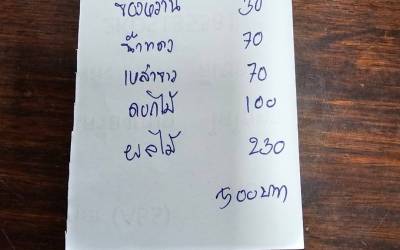 ของหวาน 30
น้ำแดง 70
เหล้าขาว 70
ดอกไม้ 100
ผลไม้ 230
500 บาท